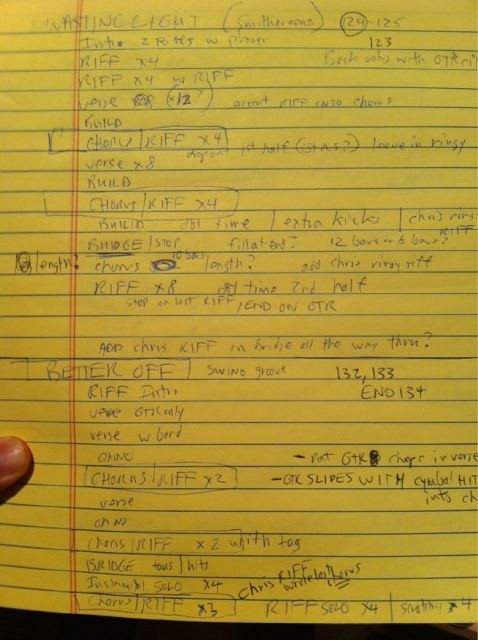 WASTING LIGHT (Smithereens) 124-125
Intro 2 Riffs w phaser 123
RIFF x4 Back oohs with GTR
RIFF x4 w RIFF
verse x8 (x12?) accent RIFF INTO chorus
BUILD
CHORUS/RIFF x4 1st half (GTRS?) leave in ringy
verse x8
BUILD
CHORUS/RIFF x4
BUILD dbl time / extra kicks / chris
RIFF
BRIDGE/STOP fill at end? 12 bars or 8 bars?
length? chorus 10 bars length? add chris ringy riff
RIFF x8 dbl time 2nd half
stop on last RIFF/END ON GTR
ADD chris RIFF in Bridge all the way thru?
BETTER OFF SWING groove 132, 133
RIFF Intro END 134
verse GTR only
verse w band
OH NO - GTR chops in verse
CHORUS/RIFF x2 - GTR SLIDES WITH cymbal HIT
into ch
verse
OH NO
chorus/RIFF x2 with tag
BRIDGE toms/hits
Instrumental SOLO x4 chris RIFF whole last chorus
Chorus/RIFF x3 RIFF SOLO x4 / x4